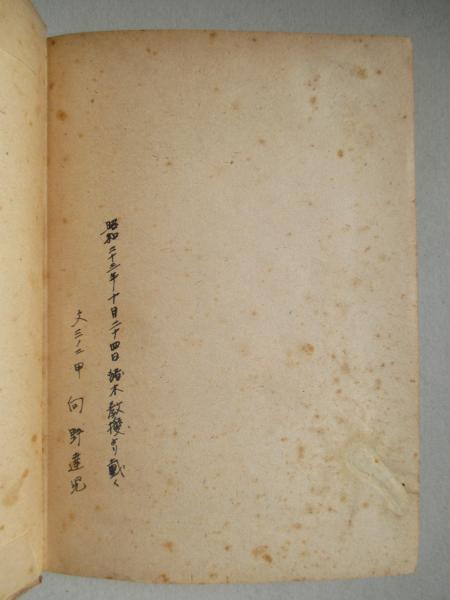 昭和二十三年十月二十四日 諸木教授より戴く
文三ノ二甲 向野達児